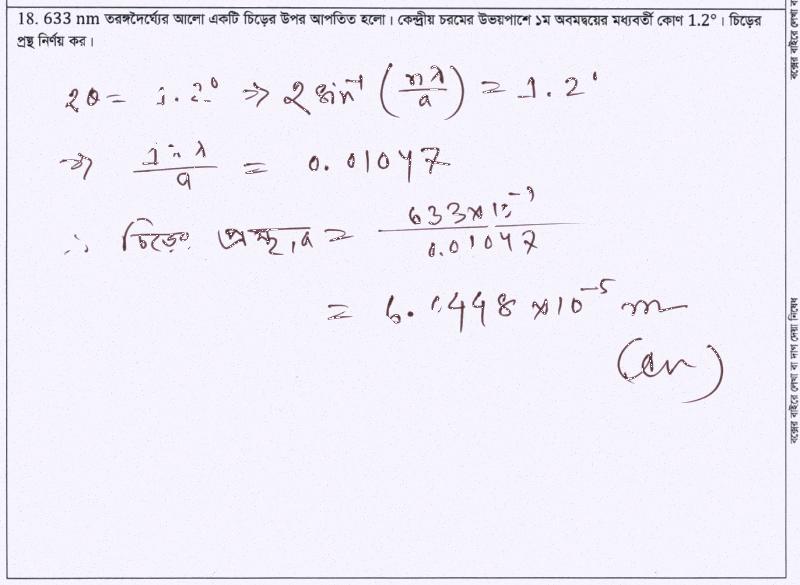 18. 633 nm তরঙ্গদৈর্ঘ্যের আলো একটি চিড়ের উপর আপতিত হলো। কেন্দ্রীয় চরমের উভয়পাশে ১ম অবমদ্বয়ের মধ্যবর্তী কোণ 1.2°। চিড়ের
প্রস্থ নির্ণয় কর।
2θ = 1.2° ⇒ 2 sin⁻¹ (nλ/a) = 1.2°
⇒ 1 × λ / a = 0.01047
∴ চিড়ের প্রস্থ, a = 633×10⁻⁹ / 0.01047
= 6.0448 ×10⁻⁵ m
(An)
বক্সের বাইরে লেখা বা দাগ দেয়া নিষেধ